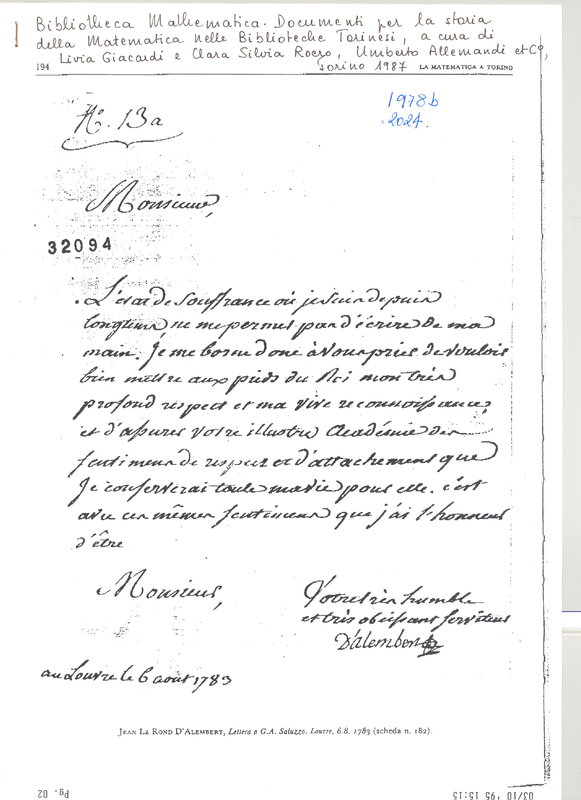 Bibliotheca Mathematica. Documenti per la storia
della Matematica nelle Biblioteche Torinesi, a cura di
Livia Giacardi e Clara Silvia Roero, Umberto Allemandi et Co,
Torino 1987
194 LA MATEMATICA A TORINO
No. 13a
1978b
2024.
Monsieur,
32094
L'état de Souffrance où je suis depuis
longtems, ne me permet pas d'écrire de ma
main. Je me borne donc à Vous prier de vouloir
bien mettre aux pieds du Roi mon très
profond respect et ma vive reconnoissance,
et d'assurer votre illustre Académie des
sentimens de respect et d'attachement que
Je conserverai toute ma vie pour elle. c'est
avec ces mêmes sentimens que j'ai l'honneur
d'être
Monsieur,
Votre très humble
et très obéissant serviteur
D'alembert
au Louvre le 6 août 1783
JEAN LE ROND D'ALEMBERT, Lettera a G.A. Saluzzo. Louvre, 6.8. 1783 (scheda n. 182).
03/10 '95 15:15
Pg. 02